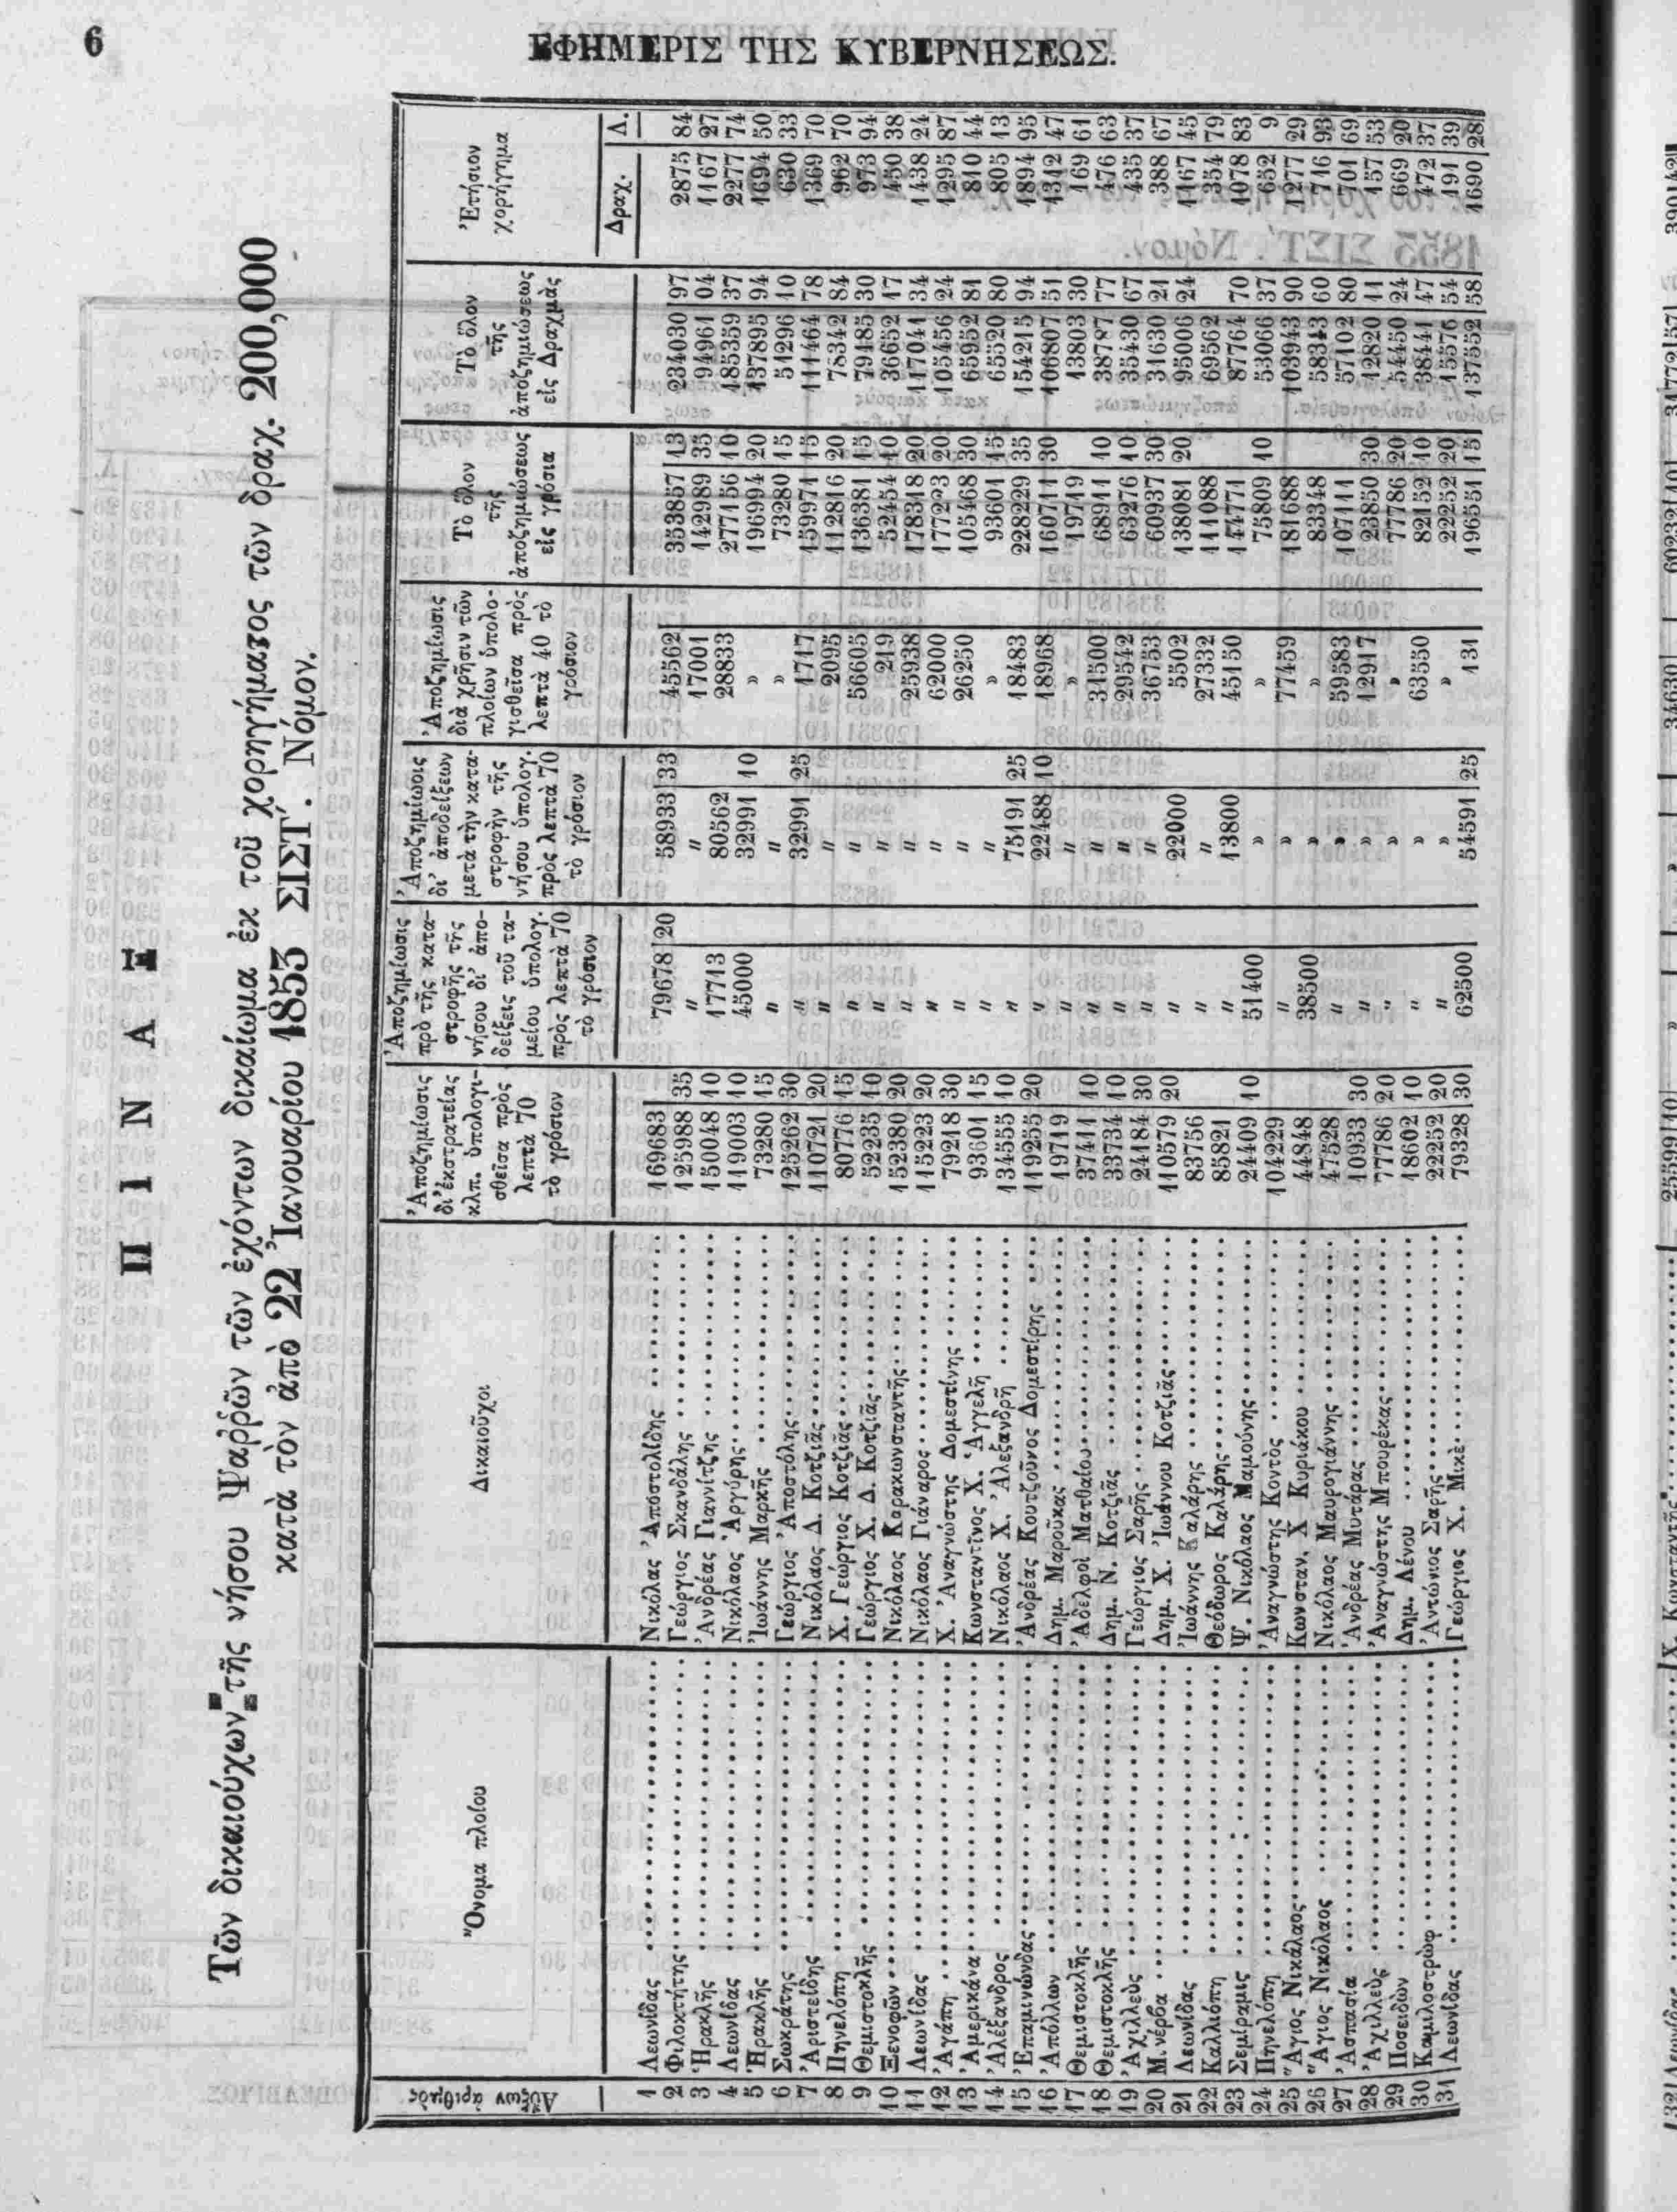 6
ΕΦΗΜΕΡΙΣ ΤΗΣ ΚΥΒΕΡΝΗΣΕΩΣ.
Π Ι Ν Α Ξ
Τῶν δικαιούχων τῆς νήσου Ψαῤῥῶν τῶν ἐχόντων δικαίωμα ἐκ τοῦ χορηγήματος τῶν δραχ. 200,000
κατὰ τὸν ἀπὸ 22 Ἰανουαρίου 1853 ΣΙΣΤ΄. Νόμον.
Αὔξων ἀριθμὸς
Ὄνομα πλοίου
Δικαιοῦχοι
Ἀποζημίωσις
δι' ἐκστρατείας
κλπ. ὑπολογι-
σθεῖσα πρὸς
λεπτὰ 70
τὸ γρόσιον
Ἀποζημίωσις
πρὸ τῆς κατα-
στροφῆς τῆς
νήσου δι' ἀπο-
δείξεις τοῦ τα-
μείου ὑπολογ.
πρὸς λεπτὰ 70
τὸ γρόσιον
Ἀποζημίωσις
δι' ἀποδείξεων
μετὰ τὴν κατα-
στροφὴν τῆς
νήσου ὑπολογ.
πρὸς λεπτὰ 70
τὸ γρόσιον
Ἀποζημίωσις
διὰ χρῆσιν τῶν
πλοίων ὑπολο-
γισθεῖσα πρὸς
λεπτὰ 40 τὸ
γρόσιον
Τὸ ὅλον
τῆς
ἀποζημιώσεως
εἰς γρόσια
Τὸ ὅλον
τῆς
ἀποζημιώσεως
εἰς Δραχμὰς
Ἐτήσιον
χορήγημα
Δραχ. Λ.
1 Λεωνίδας Νικόλας Ἀποστολίδης 169683 79678 20 58933 33 45562 353857 13 234030 97 2875 84
2 Φιλοκτήτης Γεώργιος Σκανδάλης 125988 35 " " 17001 142989 35 94961 04 1167 27
3 Ἡρακλῆς Ἀνδρέας Γιαννίτζης 150048 10 17713 80562 28833 277156 10 185359 37 2277 74
4 Λεωνίδας Νικόλαος Ἀργύρης 119003 10 45000 32991 10 » 196994 20 137895 94 1694 50
5 Ἡρακλῆς Ἰωάννης Μαρκῆς 73280 15 " " » 73280 15 51296 10 630 33
6 Σωκράτης Γεώργιος Ἀποστόλης 125262 30 " 32991 25 1717 159971 15 111464 78 1369 70
7 Ἀριστείδης Νικόλαος Δ. Κοτζιᾶς 110721 20 " " 2095 112816 20 78342 84 962 70
8 Πηνελόπη Χ. Γεώργιος Κοτζιᾶς 80776 15 " " 56605 136381 15 79485 30 973 94
9 Θεμιστοκλῆς Γεώργιος Χ. Δ. Κοτζιᾶς 52235 10 " " 219 52454 10 36652 17 450 38
10 Ξενοφῶν Νικόλαος Καρακωνσταντῆς 152380 20 " " 25938 178318 20 117041 34 1438 24
11 Λεωνίδας Νικόλαος Γιάναρος 115223 20 " " 62000 177223 20 105456 24 1295 87
12 Ἀγάπη Χ. Ἀναγνώστης Δομεστίνης 79218 30 " " 26250 105468 30 65952 81 810 44
13 Ἀμερικάνα Κωνσταντίνος Χ. Ἀγγελῆ 93601 15 " " » 93601 15 65520 80 805 13
14 Ἀλέξανδρος Νικόλαος Χ. Ἀλεξανδρῆ 134555 10 " 75191 25 18483 228229 35 154215 94 1894 95
15 Ἐπαμινώνδας Ἀνδρέας Κουτζοῦνος Δομεστίρης 119255 20 " 22488 10 18968 160711 30 106807 51 1312 47
16 Ἀπόλλων Δημ. Μαροῦκας 19719 " " » 19719 13803 30 169 61
17 Θεμιστοκλῆς Ἀδελφοὶ Ματθαίου 37411 10 " " 31500 68911 10 38787 77 476 63
18 Θεμιστοκλῆς Δημ. Ν. Κοτζιᾶς 33734 10 " " 29542 63276 10 35430 67 435 37
19 Ἀχιλλεὺς Γεώργιος Σαρῆς 24184 30 " " 36753 60937 30 31630 21 388 67
20 Μινέρβα Δημ. Χ. Ἰωάννου Κοτζιᾶς 110579 20 " 22000 5502 138081 20 95006 24 1167 45
21 Λεωνίδας Ἰωάννης Καλάρης 83756 " " 27332 111088 69562 354 79
22 Καλλιόπη Θεόδωρος Καλάρης 85821 " 13800 45150 147771 87764 70 1078 83
23 Σεμίραμις Ψ. Νικόλαος Μαμούνης 24409 10 51400 » » 75809 10 53066 37 652 9
24 Πηνελόπη Ἀναγνώστης Κοντὸς 104229 " » 77459 181688 103943 90 1277 29
25 Ἅγιος Νικόλαος Κωνσταν. Χ Κυριάκου 44848 38500 » » 83348 58343 60 716 93
26 Ἅγιος Νικόλαος Νικόλαος Μαυρογιάννης 47528 " » 59583 107111 57102 80 701 69
27 Ἀσπασία Ἀνδρέας Μυτάρας 10933 30 " » 12917 23850 30 12820 11 157 53
28 Ἀχιλλεὺς Ἀναγνώστης Μπουρέκας 77786 20 " » » 77786 20 54450 24 669 20
29 Ποσειδῶν Δημ. Λένου 18602 10 " » 63550 82152 10 38441 47 472 37
30 Καμιλοστρὼφ Ἀντώνιος Σαρῆς 22252 20 " » » 22252 20 15576 54 191 39
31 Λεωνίδας Γεώργιος Χ. Μικὲ 79328 30 62500 54591 25 131 196551 15 137552 58 1690 28